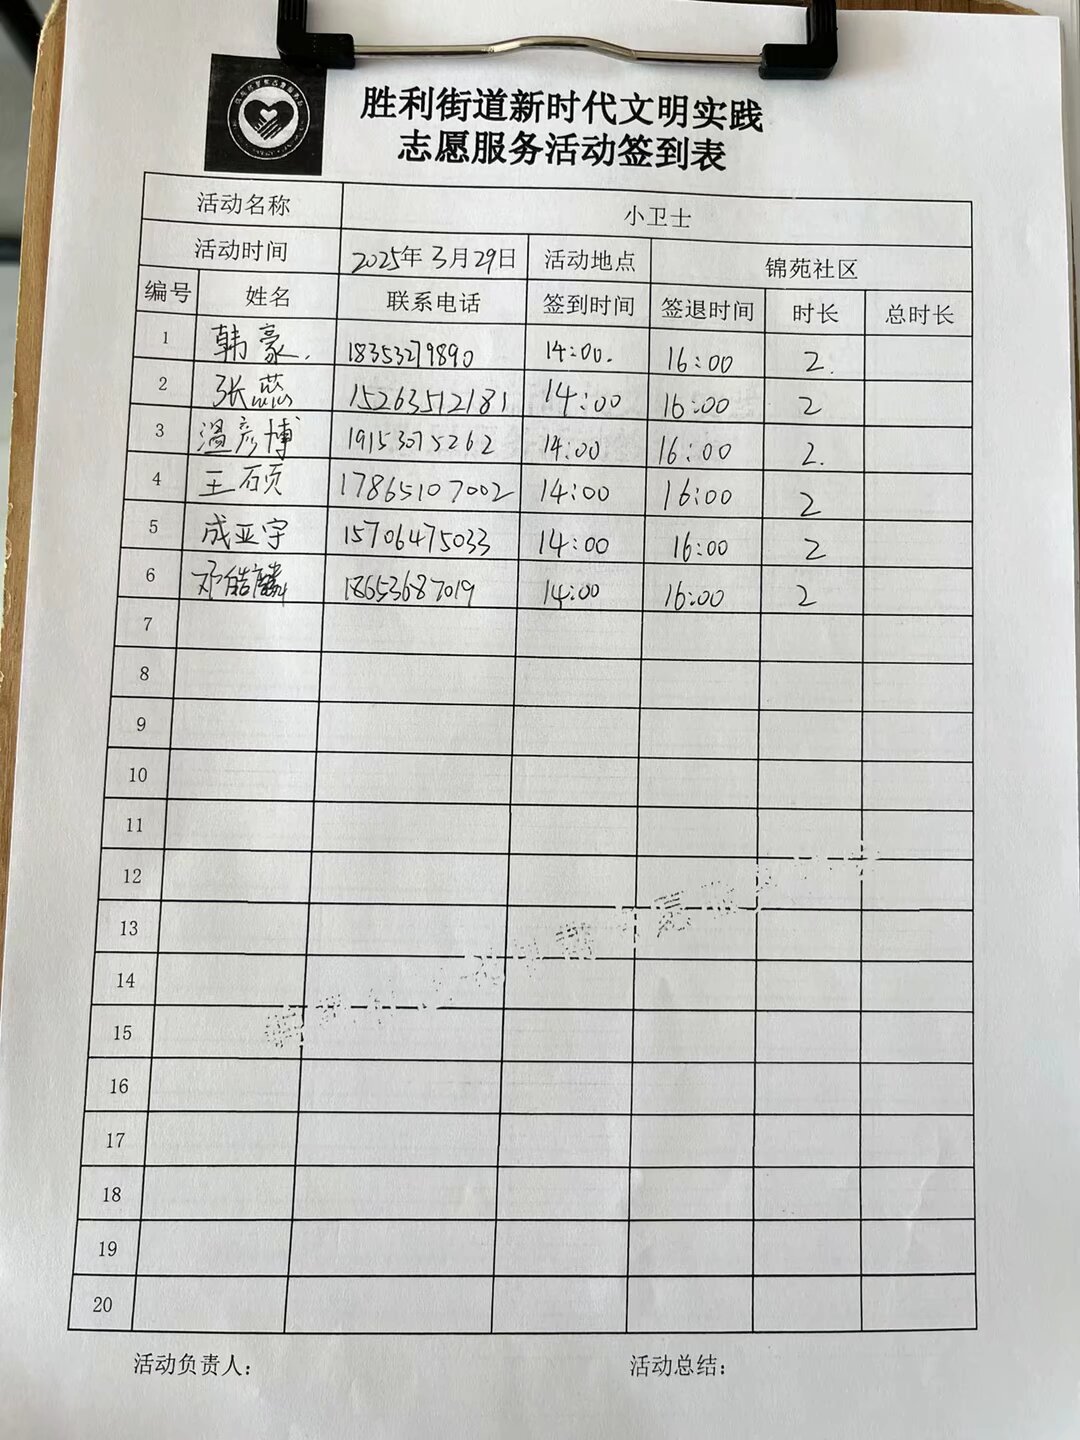 胜利街道新时代文明实践
志愿服务活动签到表
活动名称 小卫士
活动时间 2025年 3月29日 活动地点 锦苑社区
编号 姓名 联系电话 签到时间 签退时间 时长 总时长
1 韩豪. 18353279890 14:00. 16:00 2.
2 张蕊 15263512181 14:00 16:00 2
3 温彦博 19153075262 14:00 16:00 2.
4 王硕 17865107002 14:00 16:00 2
5 成亚宇 15706475033 14:00 16:00 2
6 邓皓麟 18653687019 14:00 16:00 2
7
8
9
10
11
12
13
14
15
16
17
18
19
20
活动负责人: 活动总结: